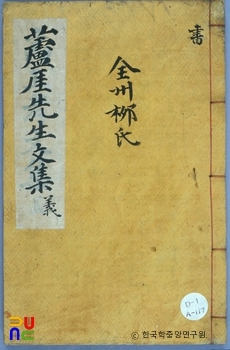 書
全州柳氏
蘆厓先生文集 義
D-1
A-117
© 한국학중앙연구원